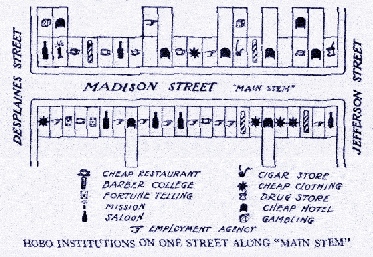 DESPLAINES STREET
MADISON STREET "MAIN STEM"
JEFFERSON STREET
CHEAP RESTAURANT
BARBER COLLEGE
FORTUNE TELLING
MISSION
SALOON
CIGAR STORE
CHEAP CLOTHING
DRUG STORE
CHEAP HOTEL
GAMBLING
EMPLOYMENT AGENCY
HOBO INSTITUTIONS ON ONE STREET ALONG "MAIN STEM"